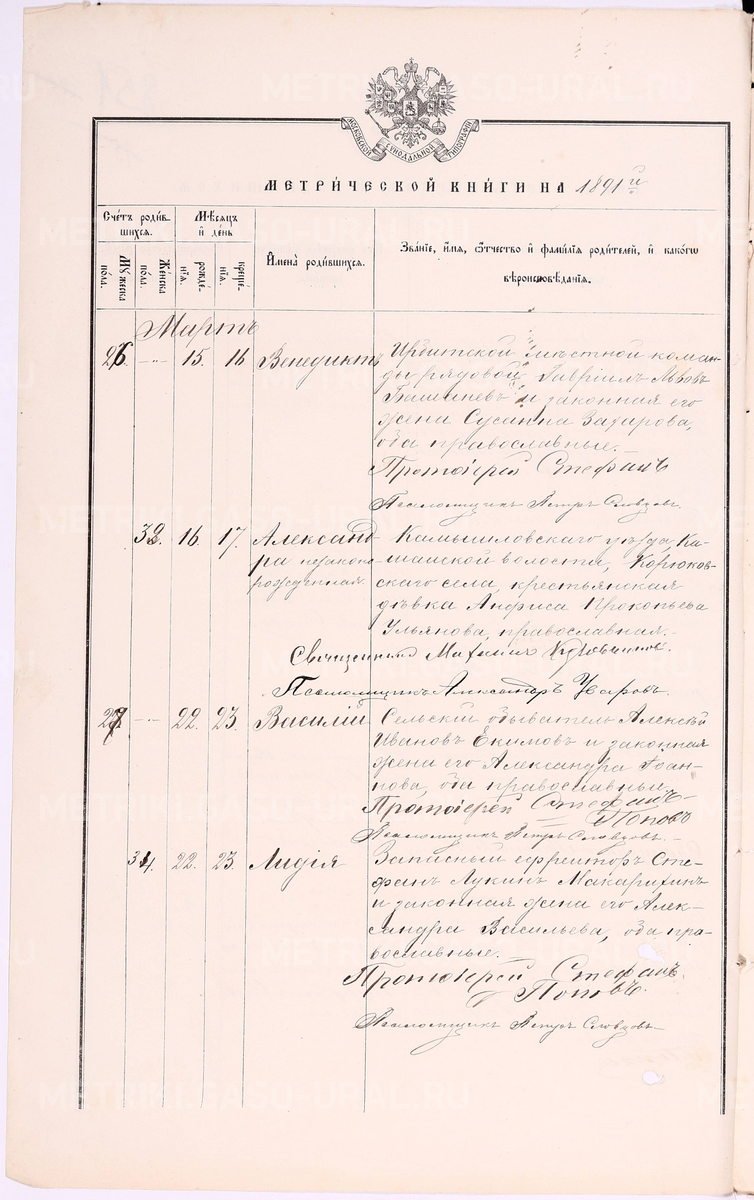 МОСКОВСКОЙ СѴНОДАЛЬНОЙ ТИПОГРАФІИ
МЕТРИ́ЧЕСКОЙ КНИ́ГИ НА 1891 й
Сче́тъ роди́в-
шихся.
Мꙋжеска
пола.
Же́нска
пола.
Мѣ́сяцъ
и де́нь
рожде́-
нія.
креще́-
нія.
Имена̀ роди́вшихся.
Зва́ніе, и́мя, ѻ҆́тчество и фами́лія роди́телей, и како́гѡ
вѣроисповѣ́данія.
Мартъ
26. -"- 15. 16 Венедиктъ
Ирбитской мѣстной коман-
ды рядовой Гавріилъ Львовъ
и законная его
жена Сусанна Захарова,
оба православные.-
Протоіерей Стефанъ
Псаломщикъ Петръ Словцовъ.
32. 16. 17. Александ-
ра незаконо-
рожденная
Камышловскаго уѣзда, Ка-
шайской волости, Корюков-
скаго села, крестьянская
дѣвка Анфиса Прокопьева
Ульянова, православная.-
Священникъ
Псаломщикъ Александръ Уваровъ.
27 -"- 22. 23. Василій
Сельскій обыватель Алексѣй
Ивановъ Екимовъ и законная
жена его Александра Іоан-
нова, оба православные.
Протоіерей Стефанъ
Поповъ
Псаломщикъ Петръ Словцовъ.-
34. 22. 23. Лидія
Запасный ефрейторъ Сте-
фанъ Лукинъ Макарихинъ
и законная жена его Алек-
сандра Васильева, оба пра-
вославные.-
Протоіерей Стефанъ
Поповъ.
Псаломщикъ Петръ Словцовъ-
METRIKI.GASO-URAL.RU